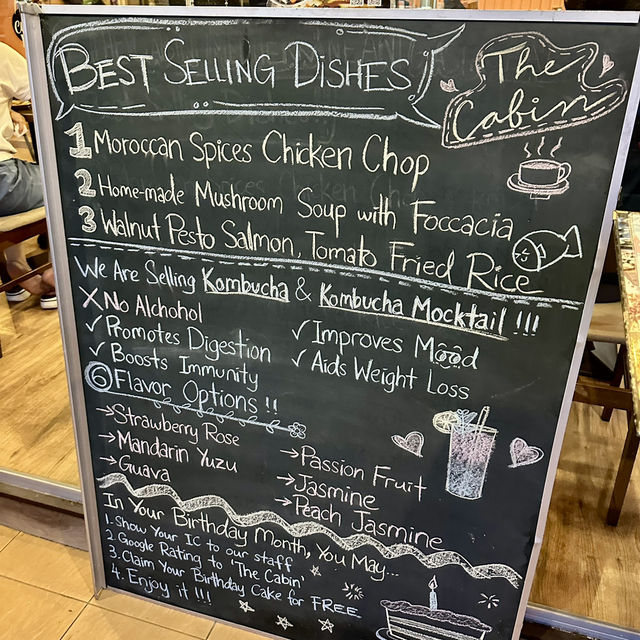 BEST SELLING DISHES
The Cabin
1 Moroccan Spices Chicken Chop
2 Home-made Mushroom Soup with Foccacia
3 Walnut Pesto Salmon, Tomato Fried Rice
We Are Selling Kombucha & Kombucha Mocktail !!!
X No Alchohol
✓ Promotes Digestion
✓ Boosts Immunity
✓ Improves Mood
✓ Aids Weight Loss
6 Flavor Options !!
→Strawberry Rose
→Mandarin Yuzu
→Guava
→Passion Fruit
→Jasmine
→Peach Jasmine
In Your Birthday Month, You May...
1. Show Your IC to our staff
2. Google Rating to 'The Cabin'
3. Claim Your Birthday Cake for FREE
4. Enjoy it !!!